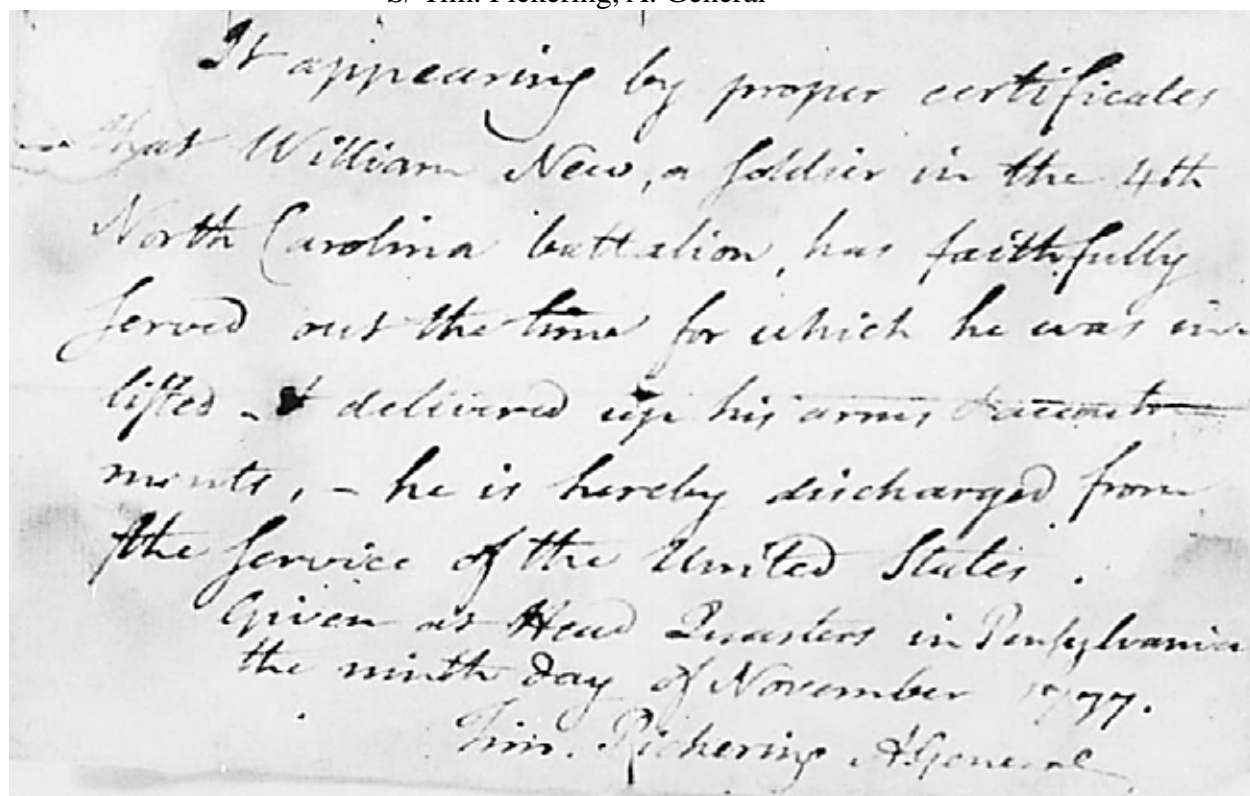 S/ Tim. Pickering, A. General
It appearing by proper certificates
that William New, a soldier in the 4th
North Carolina battalion, has faithfully
served out the time for which he was in-
listed - & delivered up his arms & accoutre
ments, - he is hereby discharged from
the service of the United States.
Given at Head Quarters in Pensylvania
the ninth day of November 1777.
Tim. Pickering A General